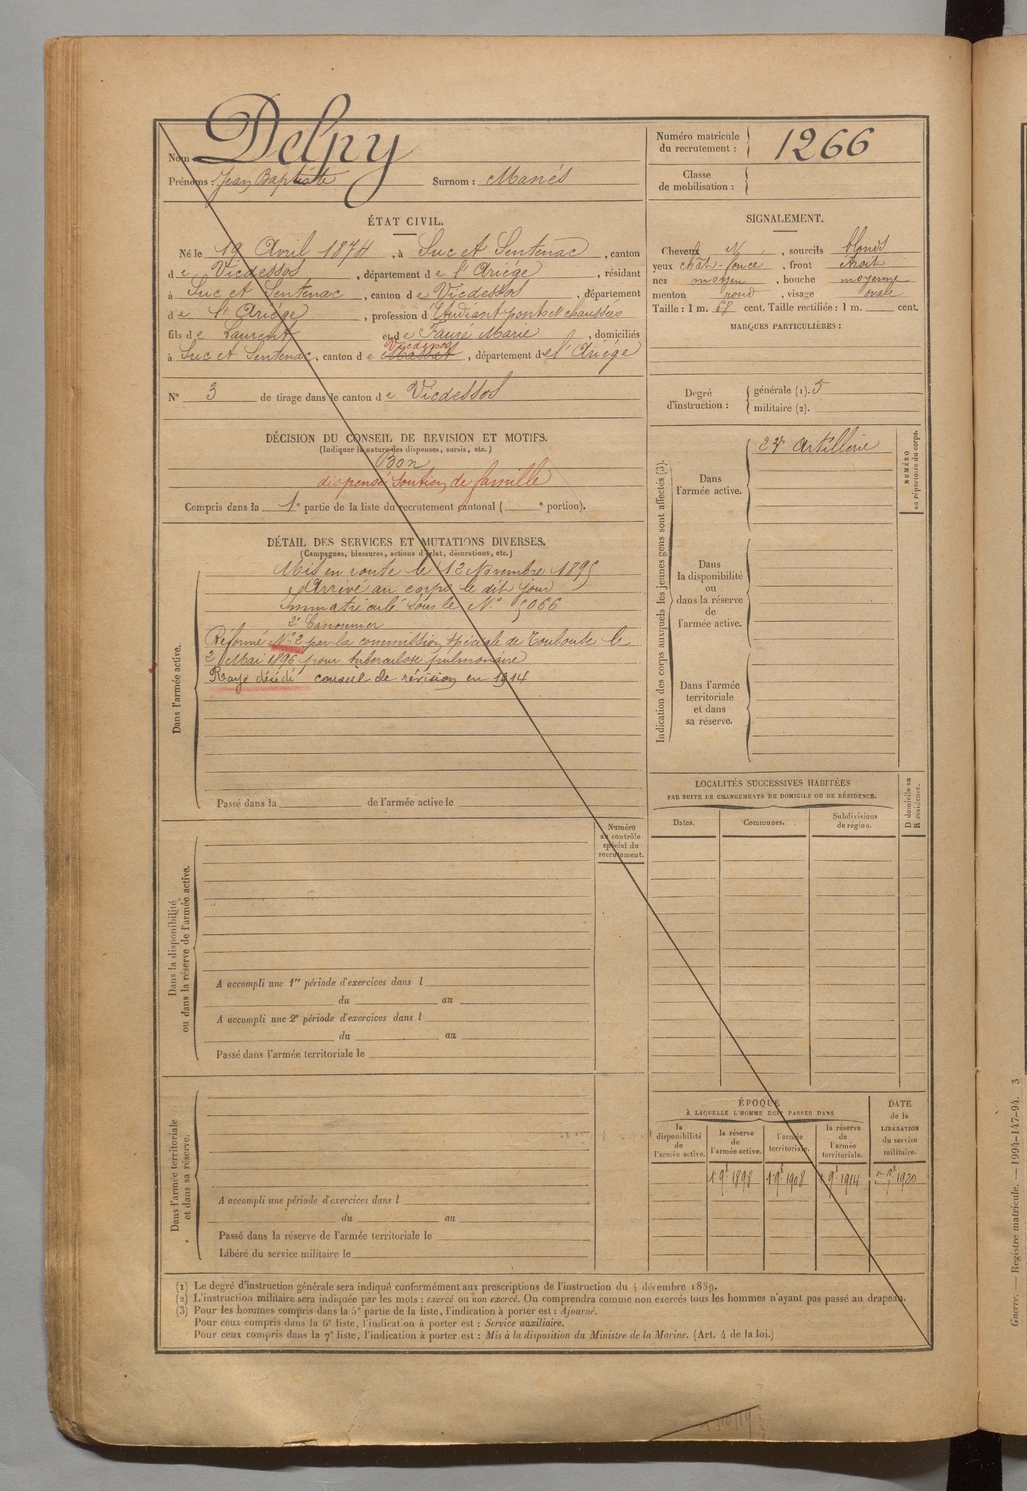 Nom Delpy
Prénoms : Jean Baptiste Surnom : Manés
Numéro matricule du recrutement : 1266
Classe de mobilisation :
ÉTAT CIVIL.
Né le 19 Avril 1874, à Suc et Sentenac, canton
de Vicdessos, département de l'Ariége, résidant
à Suc et Sentenac, canton de Vicdessos, département
de l'Ariége, profession d'Etudiant ponts et chaussées
fils de Laurent et de Fauré Marie, domiciliés
Vicdessos
à Suc et Sentenac, canton de Massat, département de l'Ariége
N° 3 de tirage dans le canton de Vicdessos
SIGNALEMENT.
Cheveux N, sourcils blonds
yeux chat-foncé, front étroit
nez moyen, bouche moyenne
menton rond, visage ovale
Taille : 1 m. 68 cent. Taille rectifiée : 1 m. cent.
MARQUES PARTICULIÈRES :
Degré d'instruction : générale (1). 5
militaire (2).
DÉCISION DU CONSEIL DE REVISION ET MOTIFS.
(Indiquer la nature des dispenses, sursis, etc.)
Bon
dispensé soutien de famille
Compris dans la 1e partie de la liste du recrutement cantonal ( e portion).
DÉTAIL DES SERVICES ET MUTATIONS DIVERSES.
(Campagnes, blessures, actions d'éclat, décorations, etc.)
Dans l'armée active.
Mis en route le 12 Novembre 1895
Arrivé au corps le dit jour
immatriculé sous le N° 5066
2e Canonnier
Réformé N° 2 par la commission spéciale de Toulouse le
2 Mai 1896 pour tuberculose pulmonaire
Rayé décédé conseil de révision en 1914
Passé dans la de l'armée active le
Indication des corps auxquels les jeunes gens sont affectés (3).
NUMÉRO au répertoire du corps.
Dans l'armée active.
Artillerie
Dans la disponibilité ou dans la réserve de l'armée active.
Dans l'armée territoriale et dans sa réserve.
LOCALITÉS SUCCESSIVES HABITÉES
PAR SUITE DE CHANGEMENTS DE DOMICILE OU DE RÉSIDENCE.
Dates. Communes. Subdivisions de région. D domicile ou R résidence.
Numéro au contrôle spécial du recrutement.
Dans la disponibilité ou dans la réserve de l'armée active.
A accompli une 1re période d'exercices dans l
du au
A accompli une 2e période d'exercices dans l
du au
Passé dans l'armée territoriale le
Dans l'armée territoriale et dans sa réserve.
A accompli une période d'exercices dans l
du au
Passé dans la réserve de l'armée territoriale le
Libéré du service militaire le
ÉPOQUE
À LAQUELLE L'HOMME DOIT PASSER DANS
la disponibilité de l'armée active. la réserve de l'armée active. l'armée territoriale. la réserve de l'armée territoriale.
DATE de la LIBÉRATION du service militaire.
1 9e 1898 1 9e 1908 1 9e 1914 1920
(1) Le degré d'instruction générale sera indiqué conformément aux prescriptions de l'instruction du 4 décembre 1889.
(2) L'instruction militaire sera indiquée par les mots : exercé ou non exercé. On comprendra comme non exercés tous les hommes n'ayant pas passé au drapeau.
(3) Pour les hommes compris dans la 5e partie de la liste, l'indication à porter est : Ajourné.
Pour ceux compris dans la 6e liste, l'indication à porter est : Service auxiliaire.
Pour ceux compris dans la 7e liste, l'indication à porter est : Mis à la disposition du Ministre de la Marine. (Art. 4 de la loi.)
Guerre. — Registre matricule. — 1994-147-94. 3